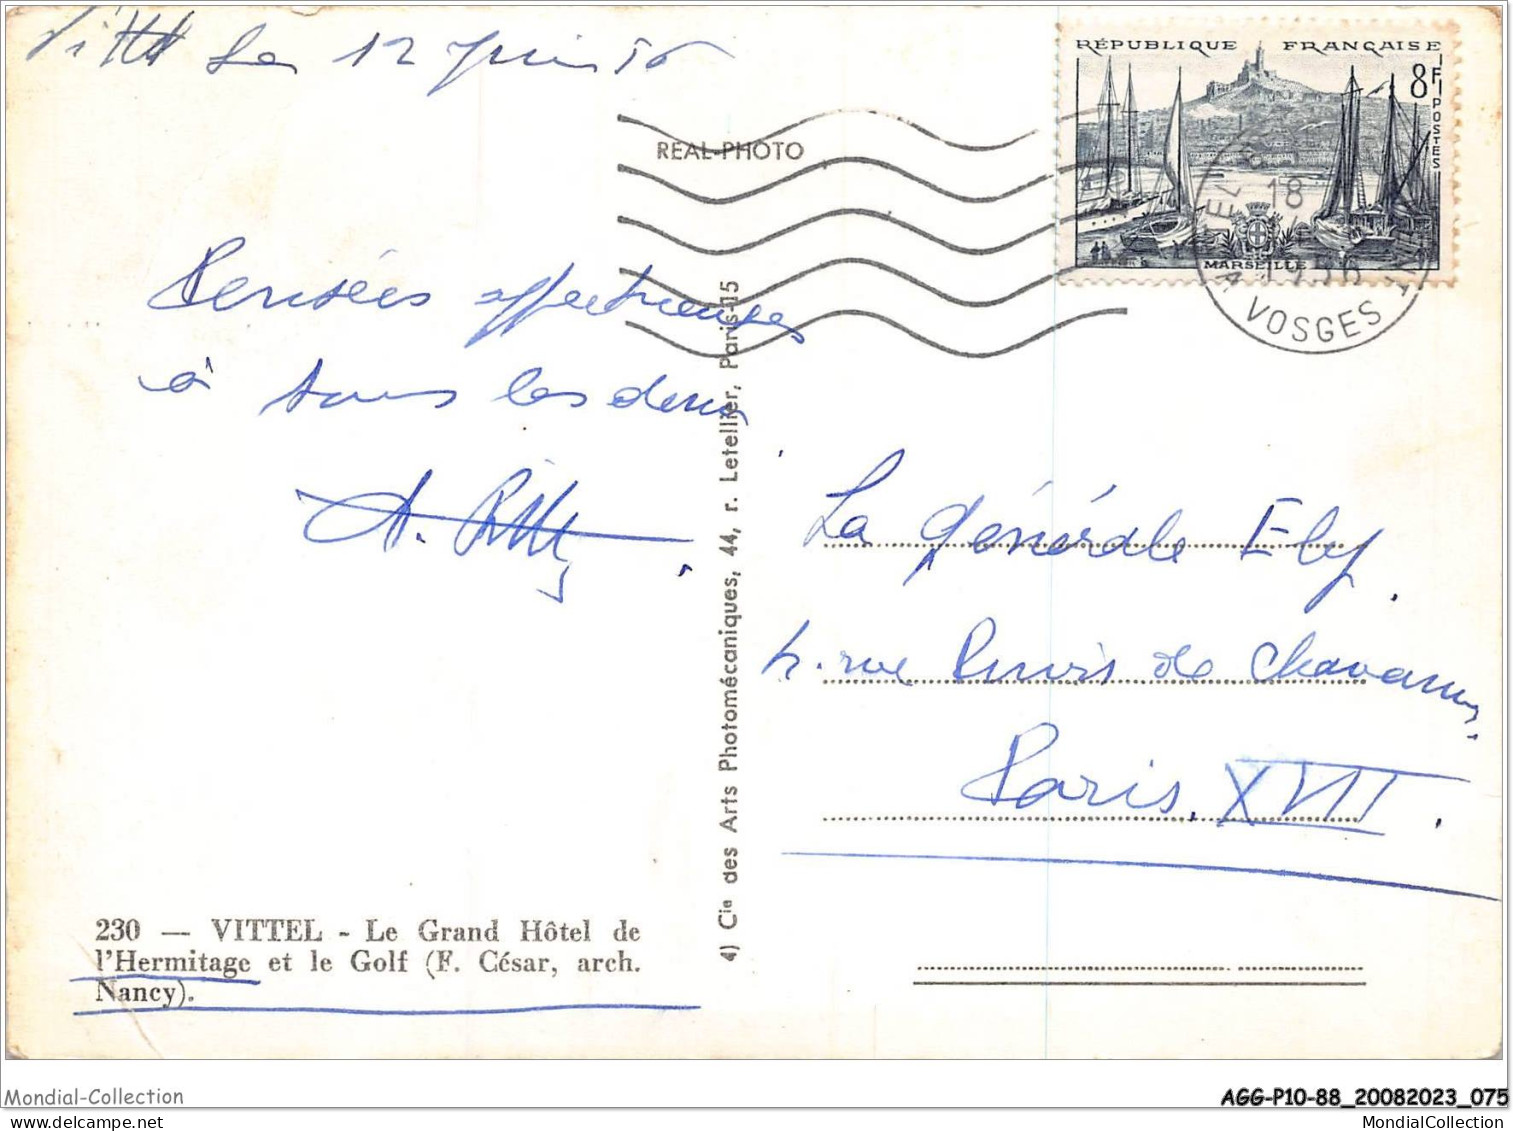 Vittel Le 12 Juin 56
RÉPUBLIQUE FRANÇAISE
8F
POSTES
MARSEILLE
REAL-PHOTO
18
VITTEL
VOSGES
Pensées affectueuses
à tous les deux
A.
La Générale Ely.
rue Puvis de Chavannes.
Paris. XVII.
4) Cie des Arts Photomécaniques, 44, r. Letellier, Paris-15
230 — VITTEL - Le Grand Hôtel de
l'Hermitage et le Golf (F. César, arch.
Nancy).
Mondial-Collection
AGG-P10-88_20082023_075
MondialCollection